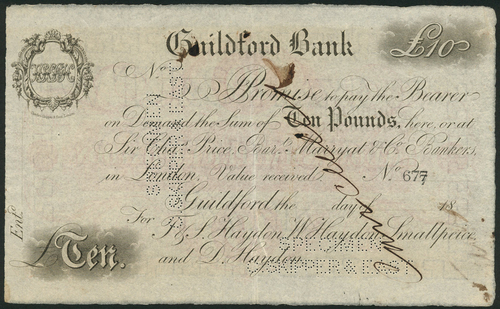 Guildford Bank
£10
No.
I Promise to pay the Bearer
on Demand the Sum of Ten Pounds, here, or at
Sir Chas. Price, Bart. Marryat & Co. Bankers,
in London, Value received.
No. 677
Guildford the day of 18
Entd.
For F. & S. Haydon, W. Haydon, Smallpeice,
and D. Haydon.
£ Ten.
SPECIMEN
SKIPPER & EAST
SPECIMEN
SKIPPER & EAST